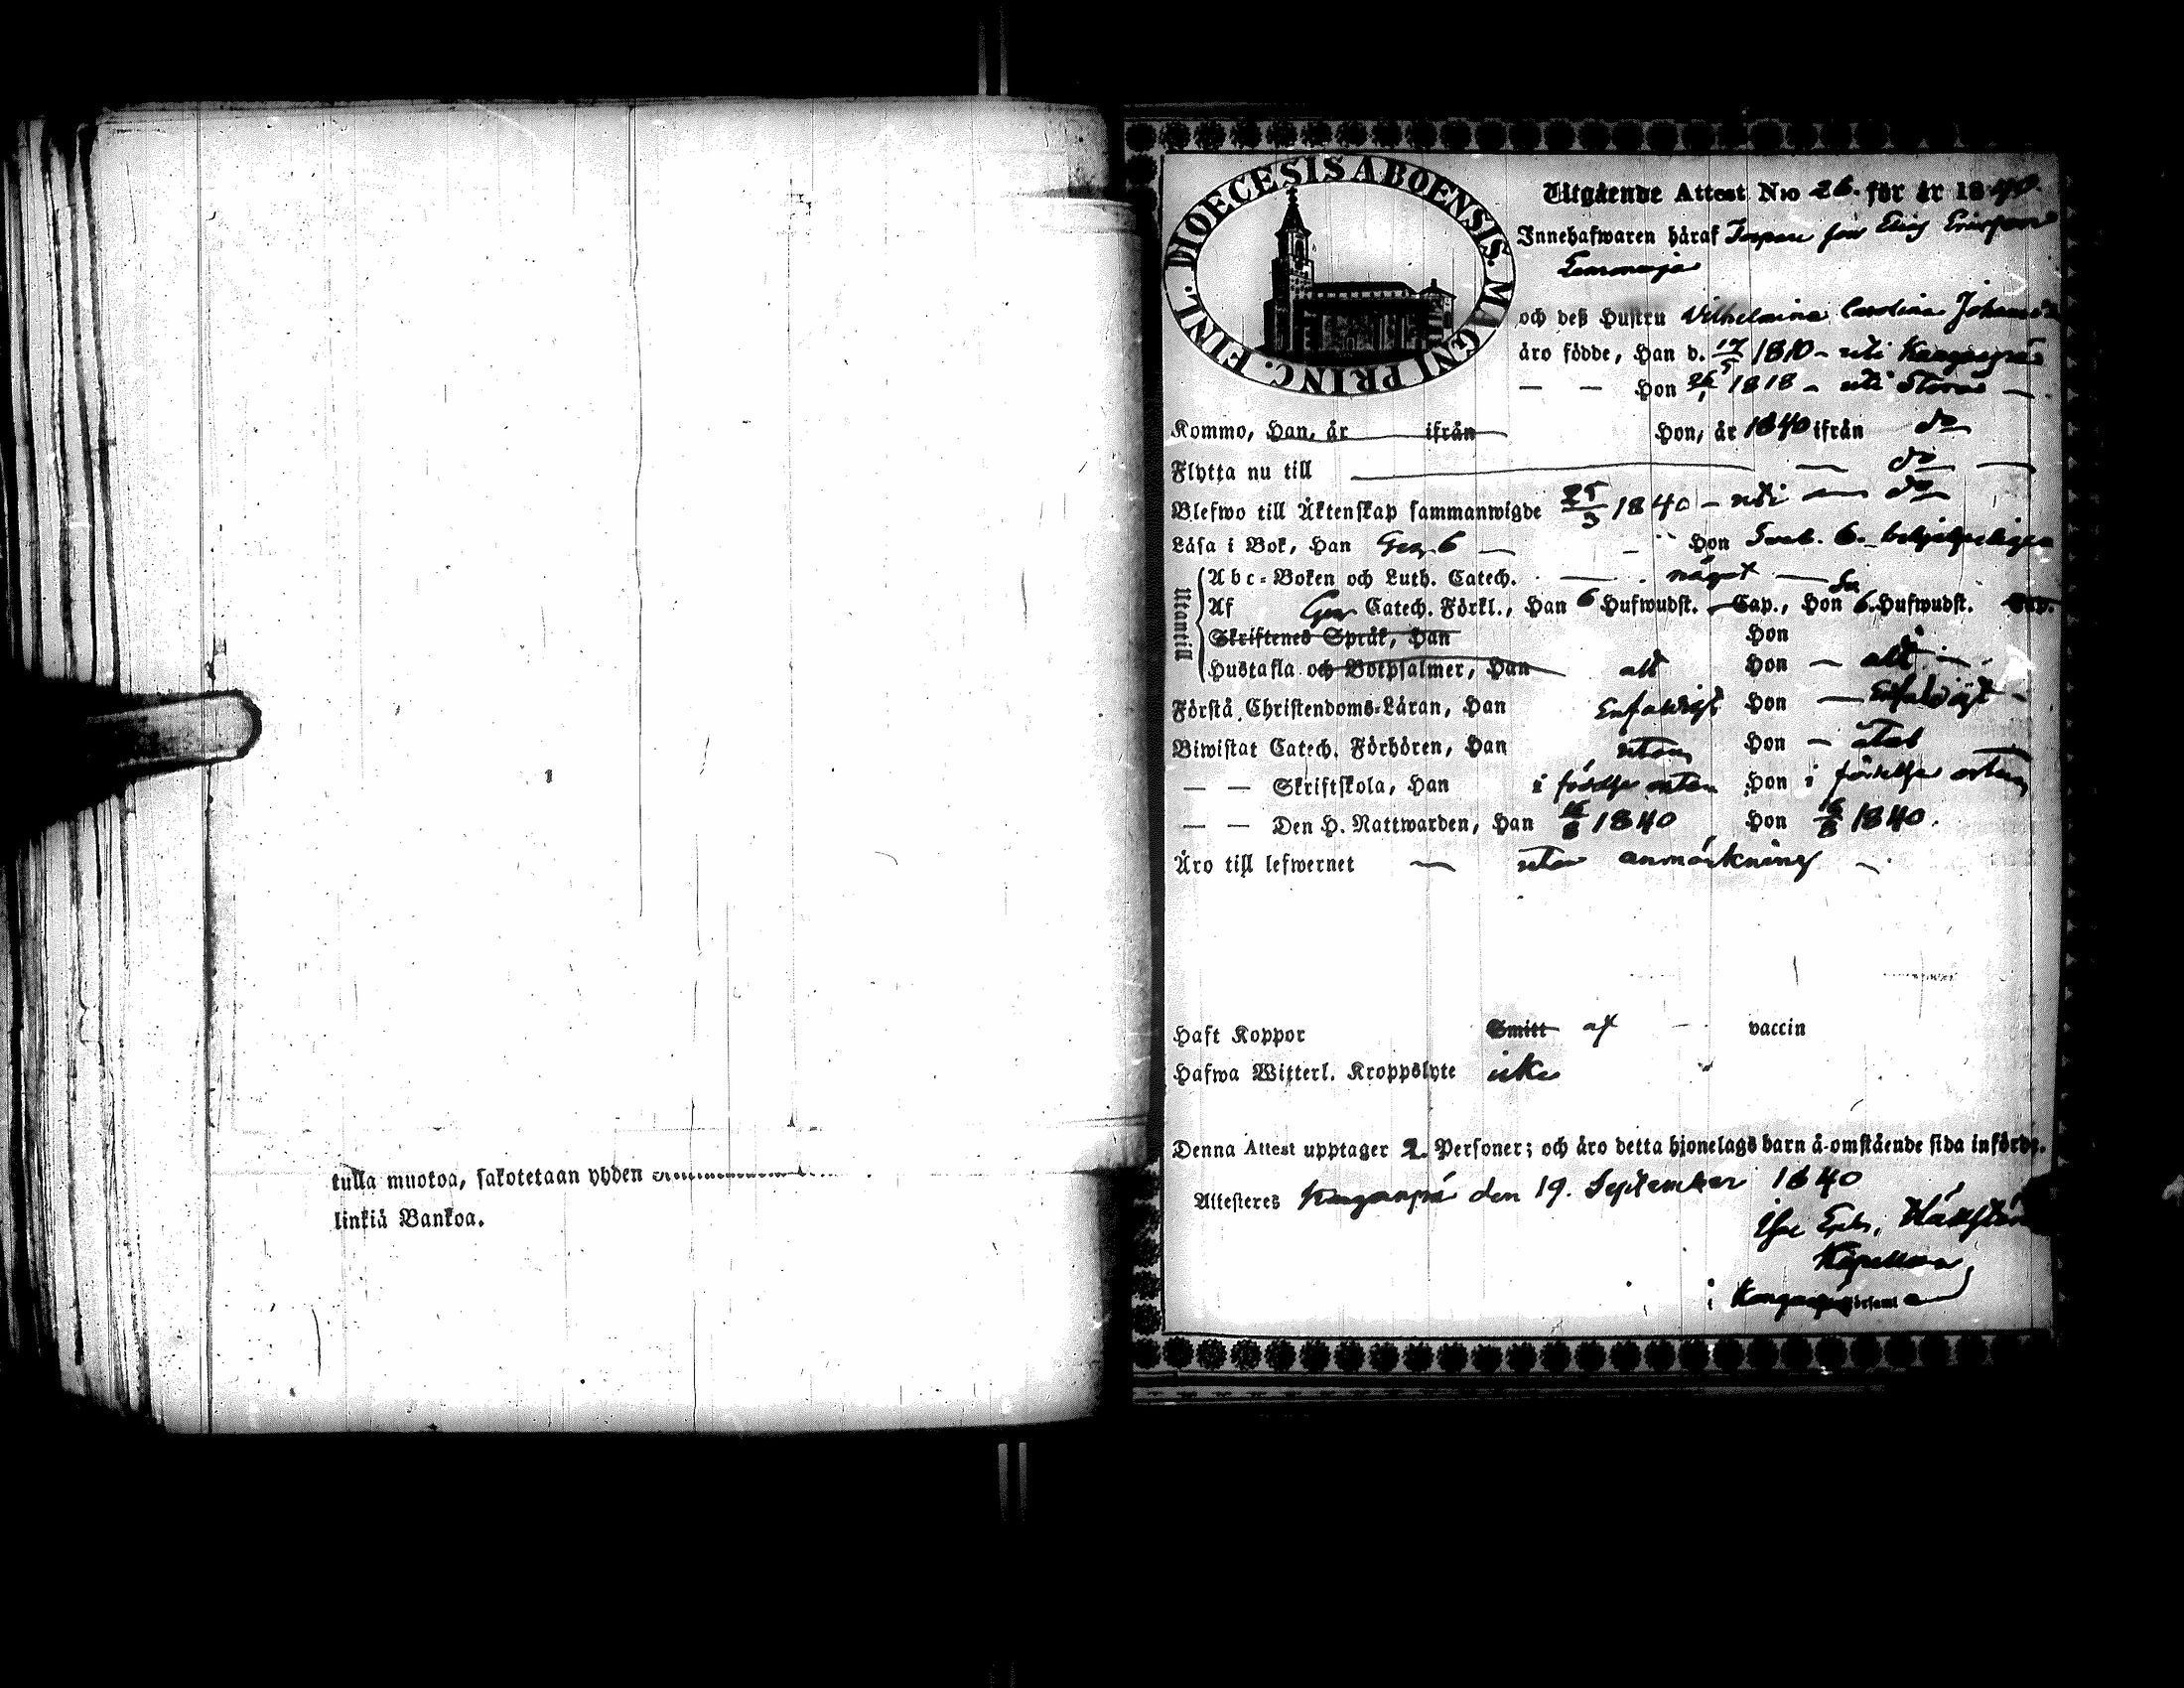 tulla muotoa, sakotetaan yhden
linkiä Bankoa.
DIOECESIS ABOENSIS. MAGNI PRINC. FINL.
Utgående Attest N:o 26. för år 1840
Innehafwaren häraf
och deß Hustru Vilhelmina Carolina
äro födde, Han d. 17/5 1810 - uti Kangaspä
— — Hon 26/1 1818 - uti —
Kommo, Han, år ifrån Hon, år 1840 ifrån do
Flytta nu till — do —
Blefwo till Äktenskap sammanwigde 25/3 1840 - uti — do
Läsa i Bok, Han 6 — Hon Sveb. 6.
Utantill
Abc-Boken och Luth. Catech. — något —
Af Catech. Förkl., Han 6 Hufwudst. Cap., Hon 6. Hufwudst. Cap.
Skriftenes Språk, Han Hon
Hustafla och Botpsalmer, Han allt Hon — allt —
Förstå Christendoms-Läran, Han Enfaldigt Hon — Enfaldigt -
Biwistat Catech. Förhören, Han utom Hon —
— — Skriftskola, Han i födelse orten Hon i födelse orten
— — Den H. Nattwarden, Han 16/8 1840 Hon 16/8 1840.
Äro till lefwernet — utan anmärkning —
Haft Koppor Smitt af — vaccin
Hafwa Witterl. Kroppslyte icke
Denna Attest upptager 2. Personer; och äro detta hjonelags barn å omstående sida införde.
Attesteres den 19. September 1840
Kapellan
i församl